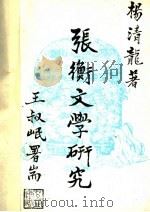 楊清龍著
張衡文學研究
王叔岷署耑